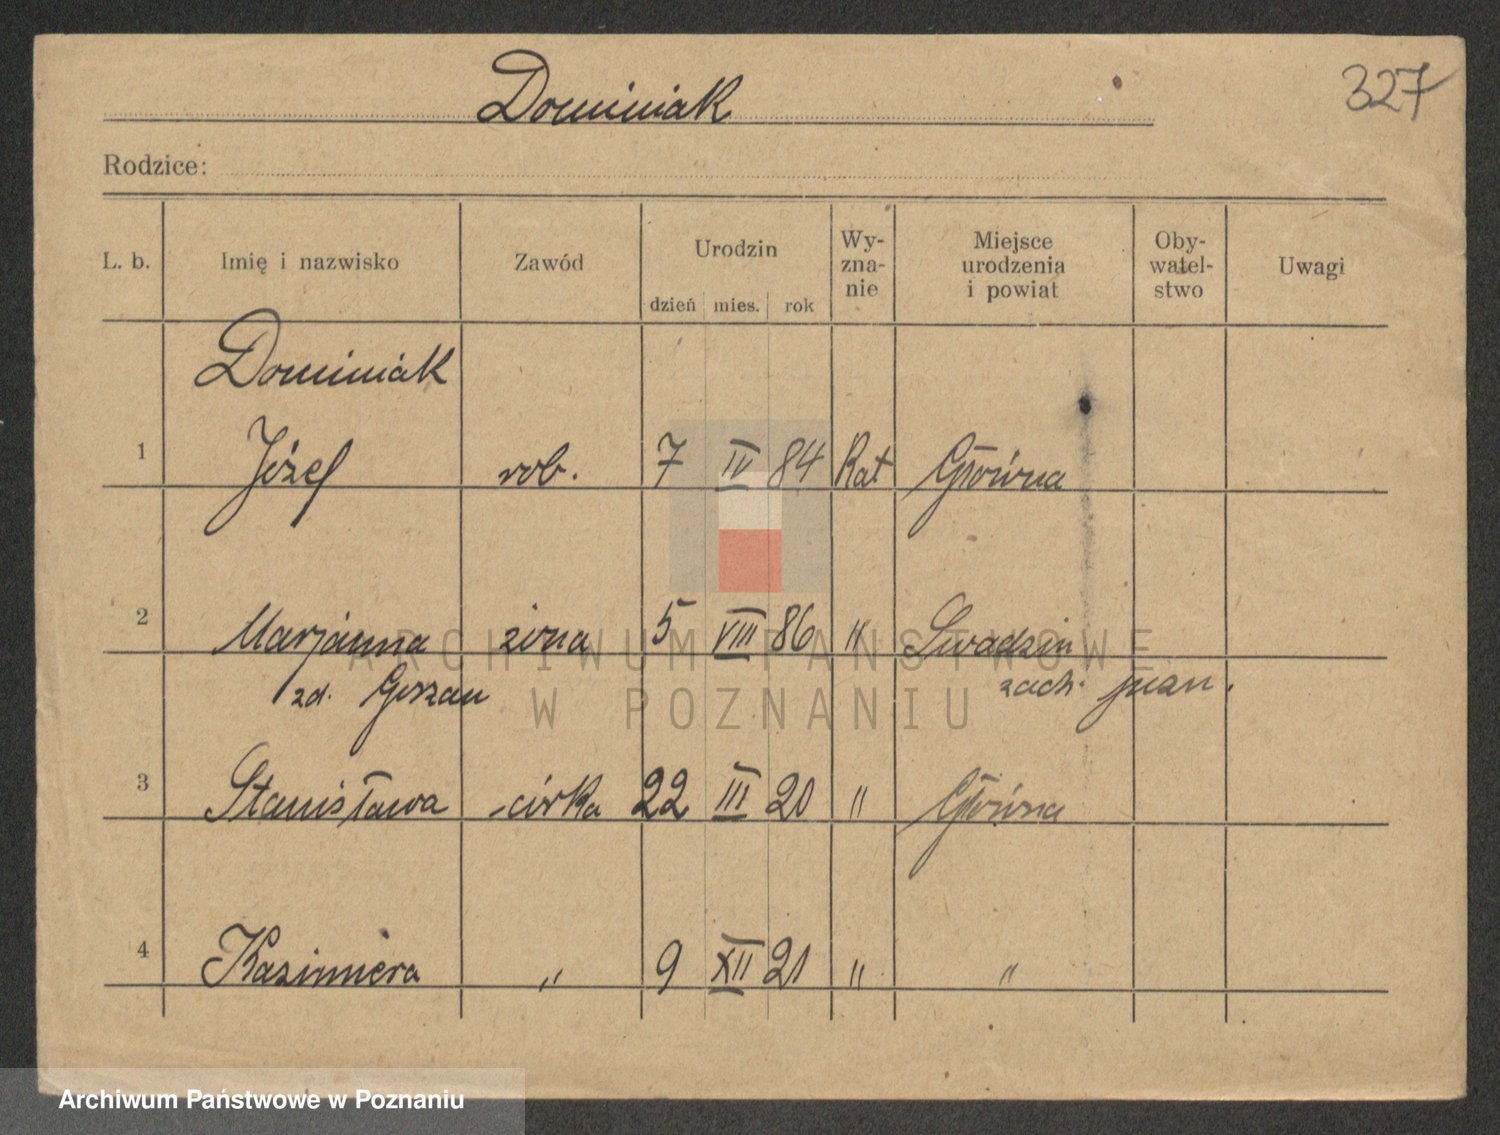 327
Dominiak
Rodzice:
L. b. Imię i nazwisko Zawód Urodzin dzień mies. rok Wy-zna-nie Miejsce urodzenia i powiat Oby-watel-stwo Uwagi
Dominiak
1 Józef rob. 7 IV 84 Kat Główna
2 Marjanna żona 5 VIII 86 " Swadzin
zd. Gorzan zach. pozn.
3 Stanisława córka 22 III 20 " Główna
4 Kazimiera " 9 XII 21 " "
ARCHIWUM PAŃSTWOWE
W POZNANIU
Archiwum Państwowe w Poznaniu